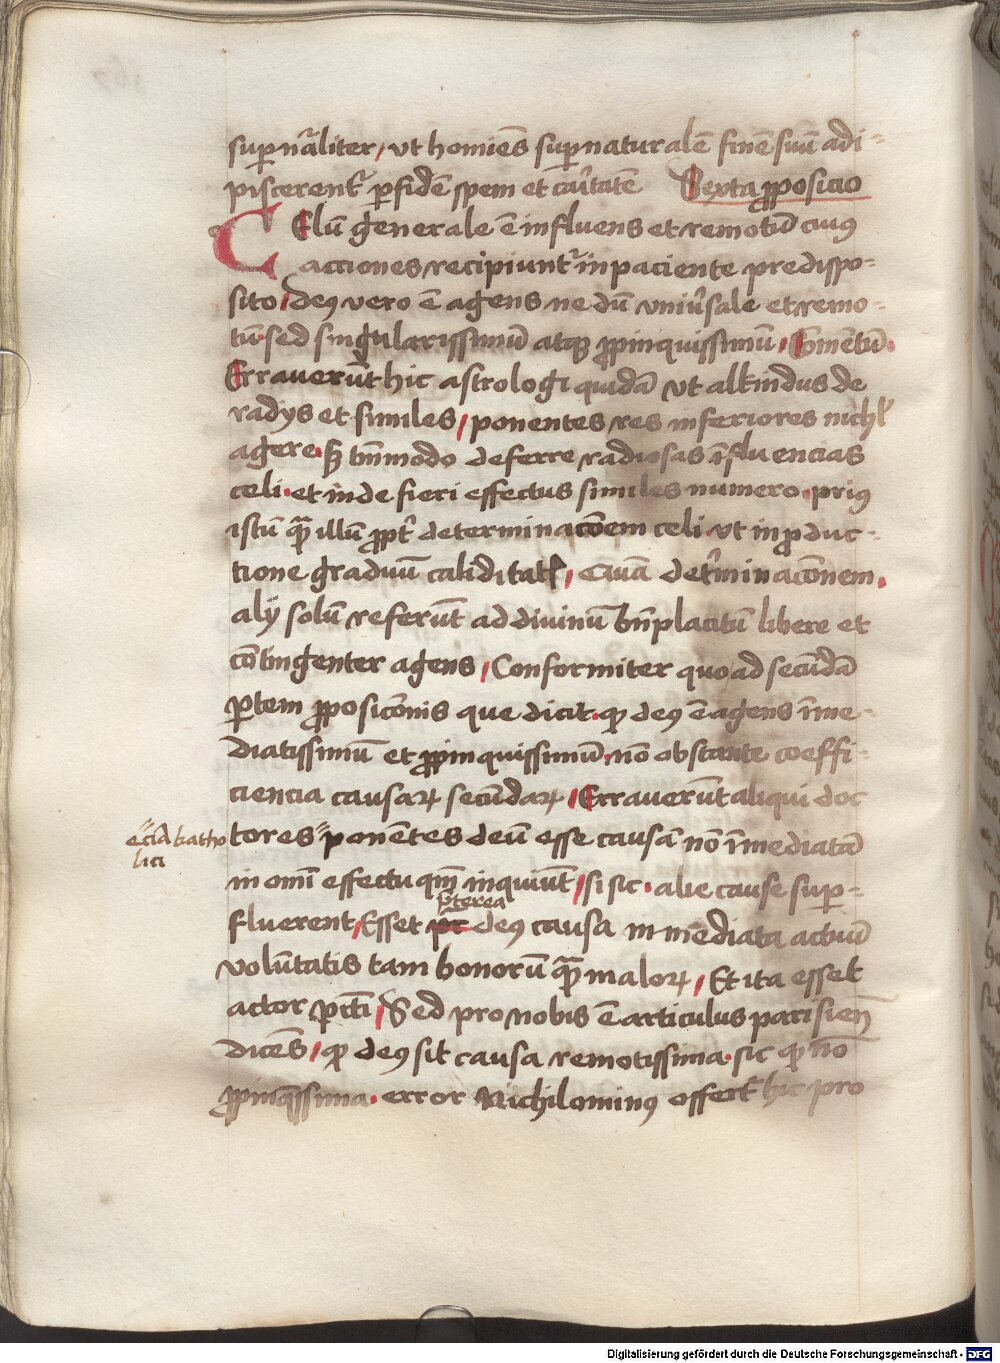 sup̱nāliter / vt homiēs sup̱naturalē finē suū adi-
piscerent᷑ p̱ fidē spem et caritatē Sexta ꝓposicio
Celū generale ē influens et remotū cuiꝰ
acciones recipiunt᷑ in paciente predispo-
sito / deꝰ vero ē agens nedū vniu̓sale et remo-
tū sed singularissimū atqꝫ ꝓpinquissimū / Comētū.
Erraverūt hic astrologi quidā vt alkindus de
radys et similes / ponentes res inferiores nichl̓
agere. sꝫ tm̄modo deferre radiosas īfluencias
celi. et inde fieri effectus similes numero. priꝰ
istū qᷓ illū ꝓpt̓ determinacōem celi vt in ꝓduc-
tione graduū caliditatꝭ / Quā det̓minacōnem.
alij solū referūt ad divinū bn̄placitū libere et
cōtingenter agens / Conformiter quo ad secūdā
ꝑtem ꝓposicōnis que dicit. ꝙ deꝰ ē agens īme-
diatissimū et ꝓpinquissimū. nō obstante coeffi-
ciencia causaꝝ secūdaꝝ / Erraverūt aliqui doc
tores " ponētes deū esse causā nō īmediatā
" eciā katho
lici
in om̄i effectu qm̄ inquiūt / si sic. alie cause sup̱-
fluerent / Esset p̄terea deꝰ causa inmediata actuū
voluntatis tam bonorū qᷓ maloꝝ / Et ita esset
actor pcc̄ti / Sed pro nobis ē articulus parisieñ
dicēs / ꝙ deꝰ sit causa remotissima. sic ꝙ nō
ꝓpinqͥssima. error Nichilominꝰ offert᷑ hic pro
Digitalisierung gefördert durch die Deutsche Forschungsgemeinschaft - DFG